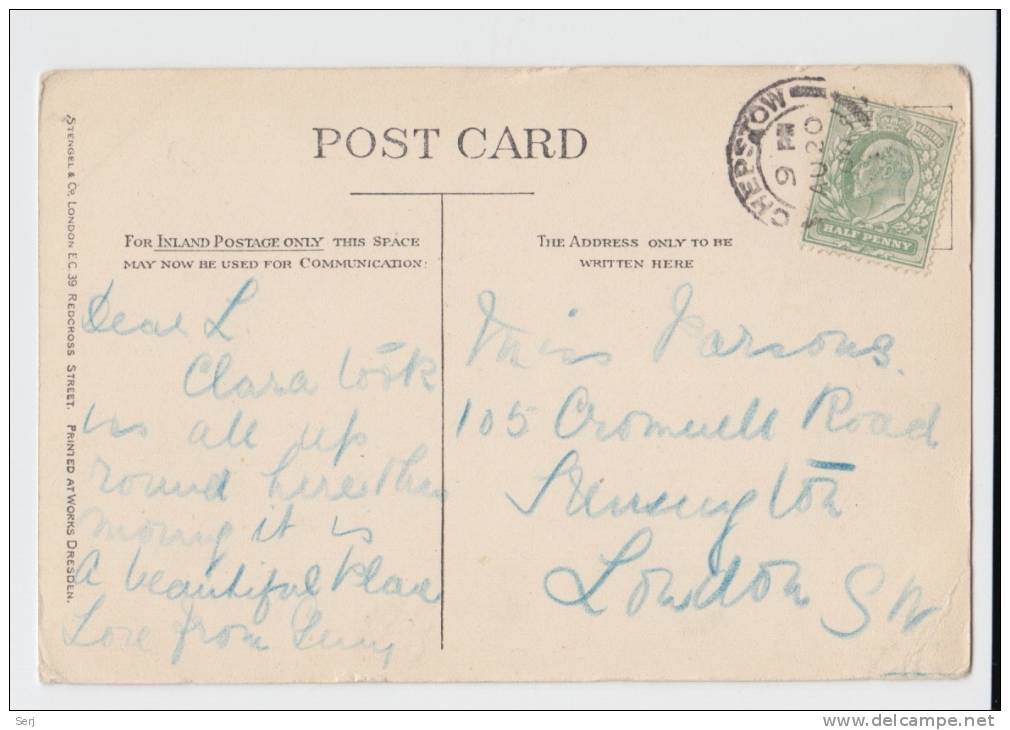 POST CARD
FOR INLAND POSTAGE ONLY THIS SPACE
MAY NOW BE USED FOR COMMUNICATION.
THE ADDRESS ONLY TO BE
WRITTEN HERE
STENGEL & Co, LONDON E.C. 39 REDCROSS STREET. PRINTED AT WORKS DRESDEN.
CHEPSTOW
9 PM
AU 20
HALF PENNY
Dear L
Clara took
us all up
round here this
morng it is
A beautiful place
Love from
Miss Parsons.
105 Cromwell Road
Kensington
London SW
Serj
www.delcampe.net